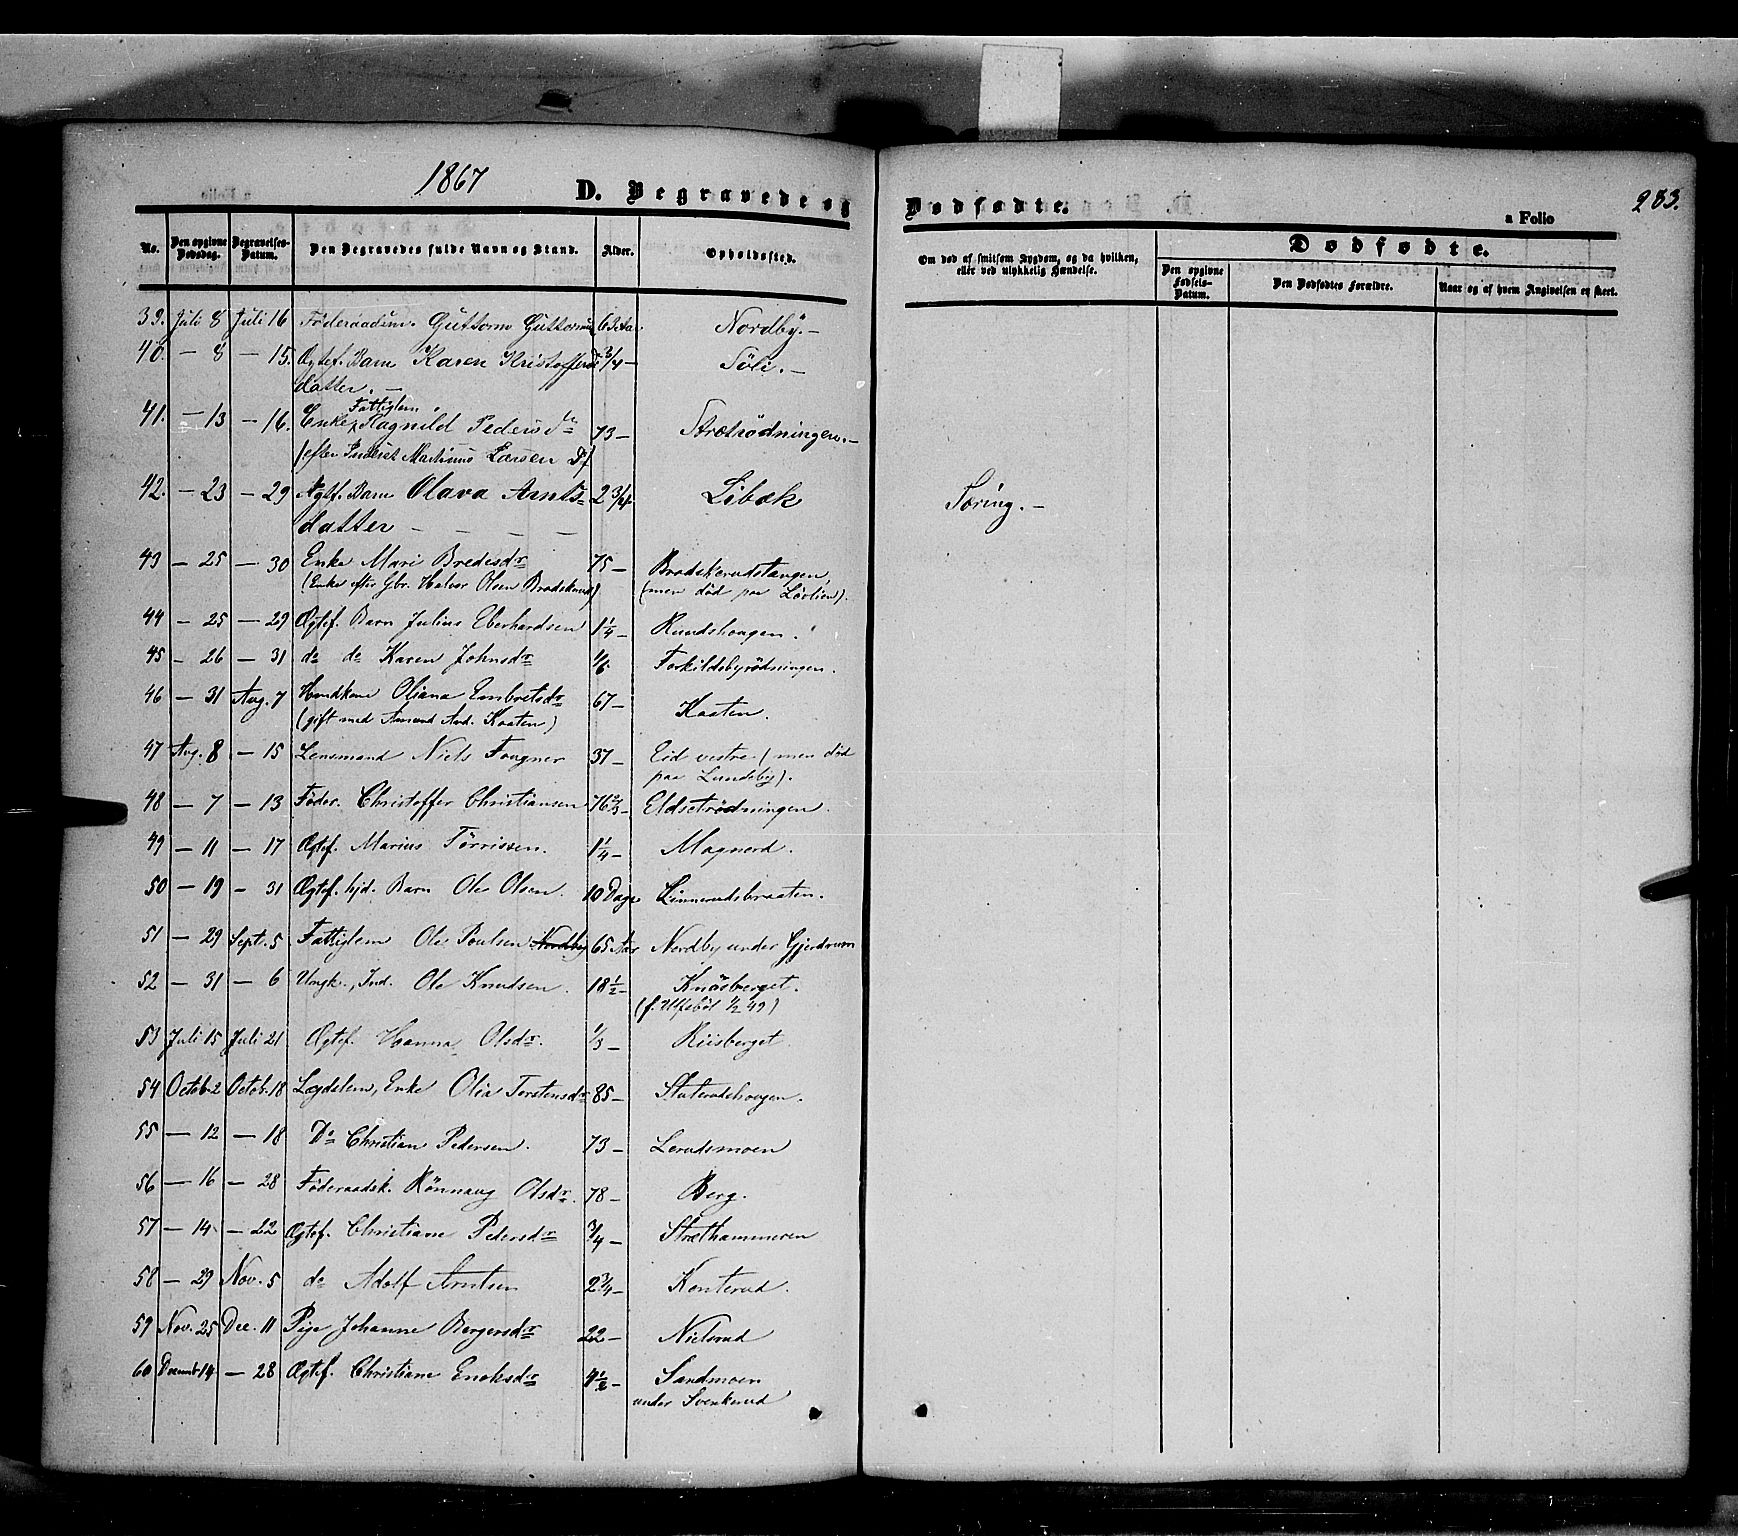 1867
D. Begravede og
Dødfødte.
a Folio
283.
No.
Den opgivne Dødsdag.
Begravelses-Datum.
Den Begravedes fulde Navn og Stand.
Alder.
Opholdssted.
Om død af smitsom Sygdom, og da hvilken,
eller ved ulykkelig Hændelse.
Dødfødte.
Den opgivne Fødsels-Datum.
Den Dødfødtes Forældre.
Naar og af hvem Angivelsen er skeet.
39. Juli 8 Juli 16 Föderaadsm. Guttorm 63 Aar. Nordby. –
40. – 8 – 15. Ægtef. Barn Karen Kristoffers 3/4 – Söli. –
datter. –
Fattiglem
41. – 13 – 16. Enke Ragnild Pedersdr 73 – Strætrödningen. –
(efter Inderst Martinus Larsen
42. – 23 – 29 Ægtf. Barn Olava Arnts= 2 3/4 Libæk Tæring. –
datter – – – –
43 – 25 – 30 Enke Mari Bredesdr 75 – Bradskerudstangen,
(Enke efter Gbr. Halvor Olsen Bradskerud) (men död paa Lövlien).
44 – 25 – 29 Ægtef. Barn Julius Eberhardsen 1 1/4 – Rundshougen.
45 – 26 – 31 do do Karen Johnsdr 1/6. Torkildsbyrödningen.
46 – 31 Aug. 7 Huudkone Oliana Embretsdr 67 – Kaaten.
(gift med Amund And. Kaaten)
47 Aug. 8 – 15 Lensmand Niels Fougner 37 – Eid vestre (men död
paa Lundeby).
48 – 7 – 13 Föder. Christoffer Christiansen 76 2/3 – Eldsetrödningen.
49 – 11 – 17 Ægtf. Marius Törrissen. 1 1/4 – Magnerd.
50 – 19 – 31 Ægtef. hjd. Barn Ole Olsen. 10 Dage Linnerudsbraaten.
51 – 29 Sept. 5 Fattiglem Ole Poulsen Nordby 65 Aar Nordby under Gjerdrum
52 – 31 – 6 Ungk., Ind. Ole Knudsen. 18 1/2 – Knäsberget.
(f. Ulfsböl 1/2 49)
53 Juli 15 Juli 21 Ægtef. Hanna Olsdr. 1/3 – Riisberget.
54 Octob. 2 Octob. 18 Lægdslem, Enke Olia Torstensdr 85 – Slaterudshougen.
55 – 12 – 18 Do Christian Pedersen. 73 – Lerudsmoen
56 – 16 – 28 Föderaadsk. Rönnaug Olsdr. 78 – Berg.
57 – 14 – 22 Ægtef. Christiane Pedersdr 3/4 – Stræthammeren
58 – 29 Nov. 5 do Adolf Arntsen 2 3/4 – Konterud.
59 Nov. 25 Dec. 11 Pige Johanne Bergersdr 22 – Nielsrud
60 Decemb. 14 – 28 Ægtef. Christiane Enoksdr 4 1/2 – Sandmoen
under Svenkerud